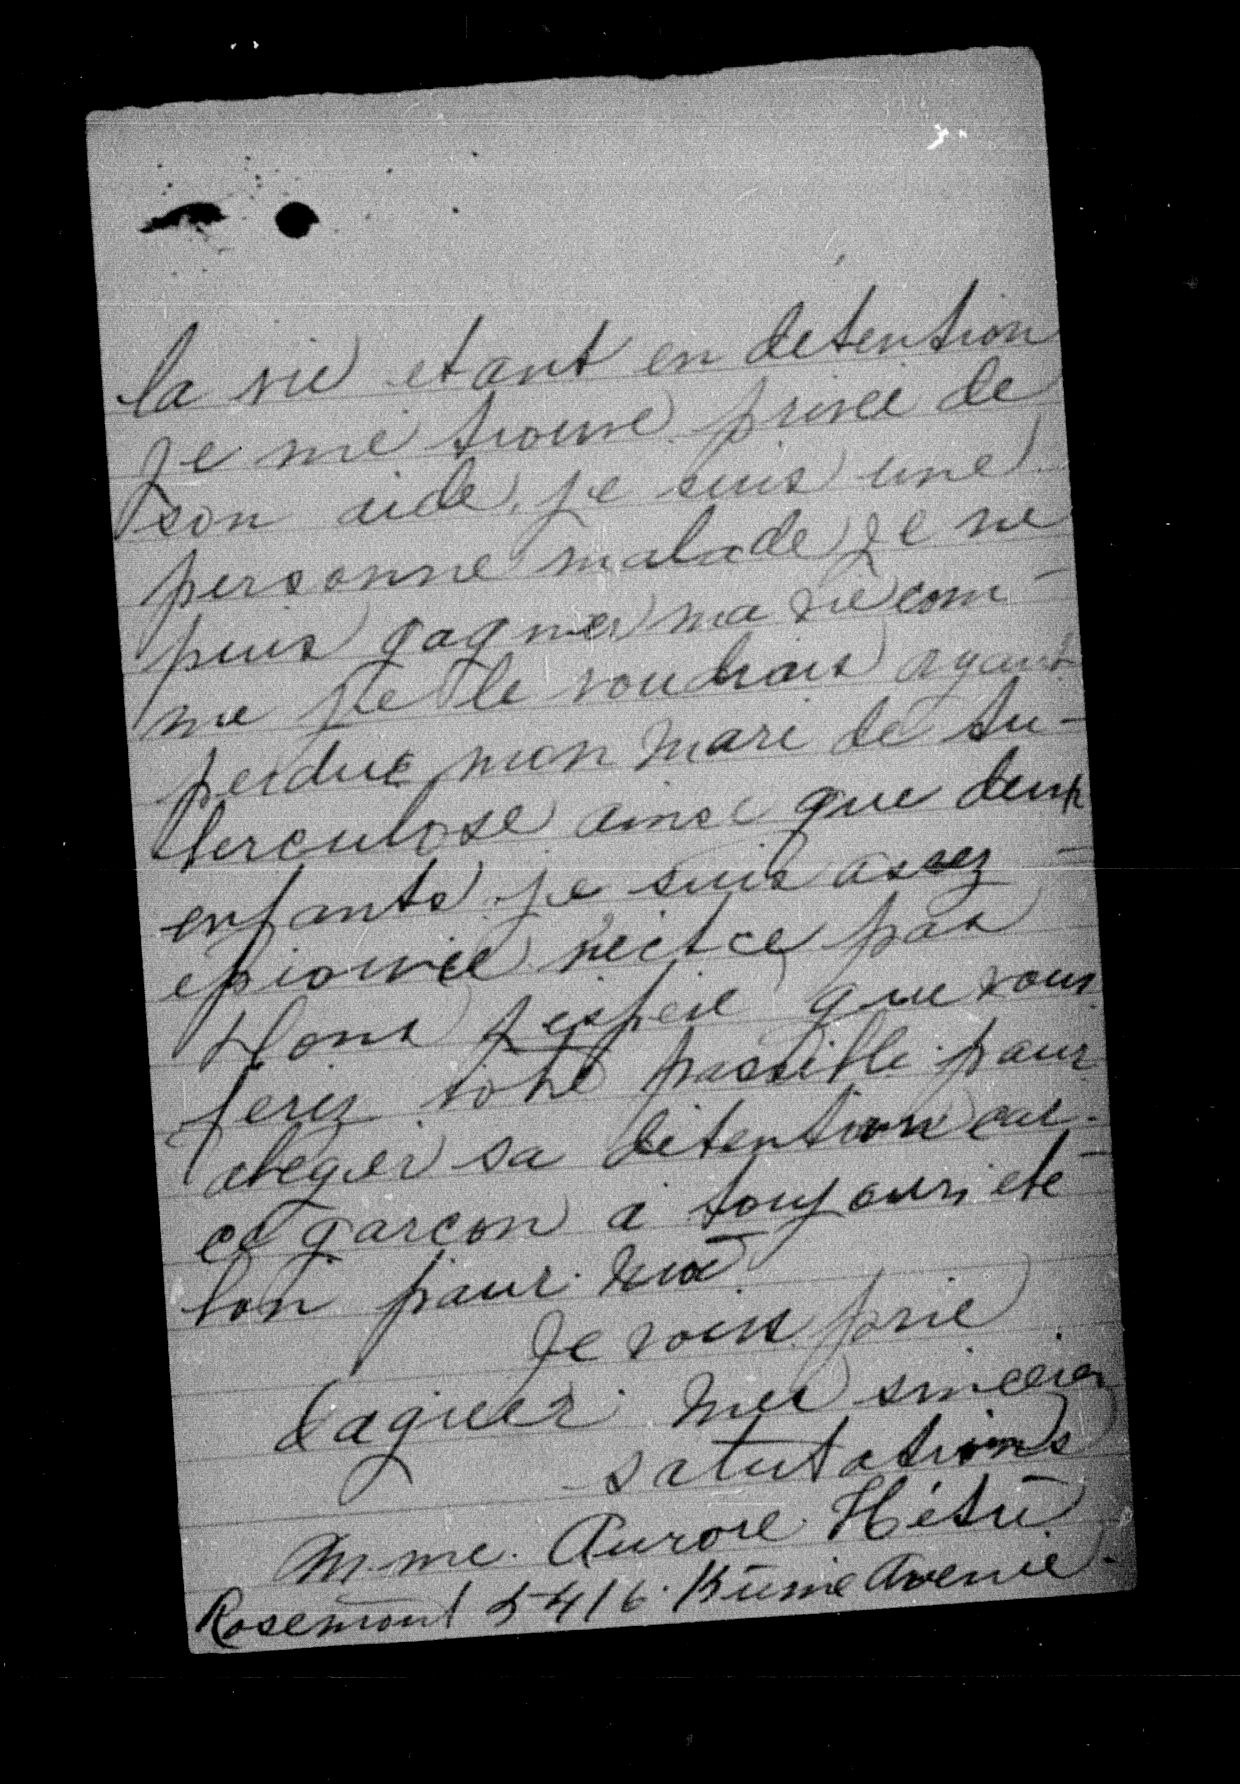 la vie etant en detention
Je me trouve privée de
son aide. je suis une
personne malade Je ne
puis gagner ma vie com-
me je le voudrais ayant
perdue mon mari de tu-
berculose ainsi que deux
enfants je suis assez
eprouvée n'est ce pas
Hons J'espere que vous
ferez votre possible pour
abeger sa detention car
ce garcon a toujours eté
bon pour moi
Je vous prie
d'agreer mes sinceres
salutations
Mme. Aurore Hétu
Rosemont 5416. Avenue